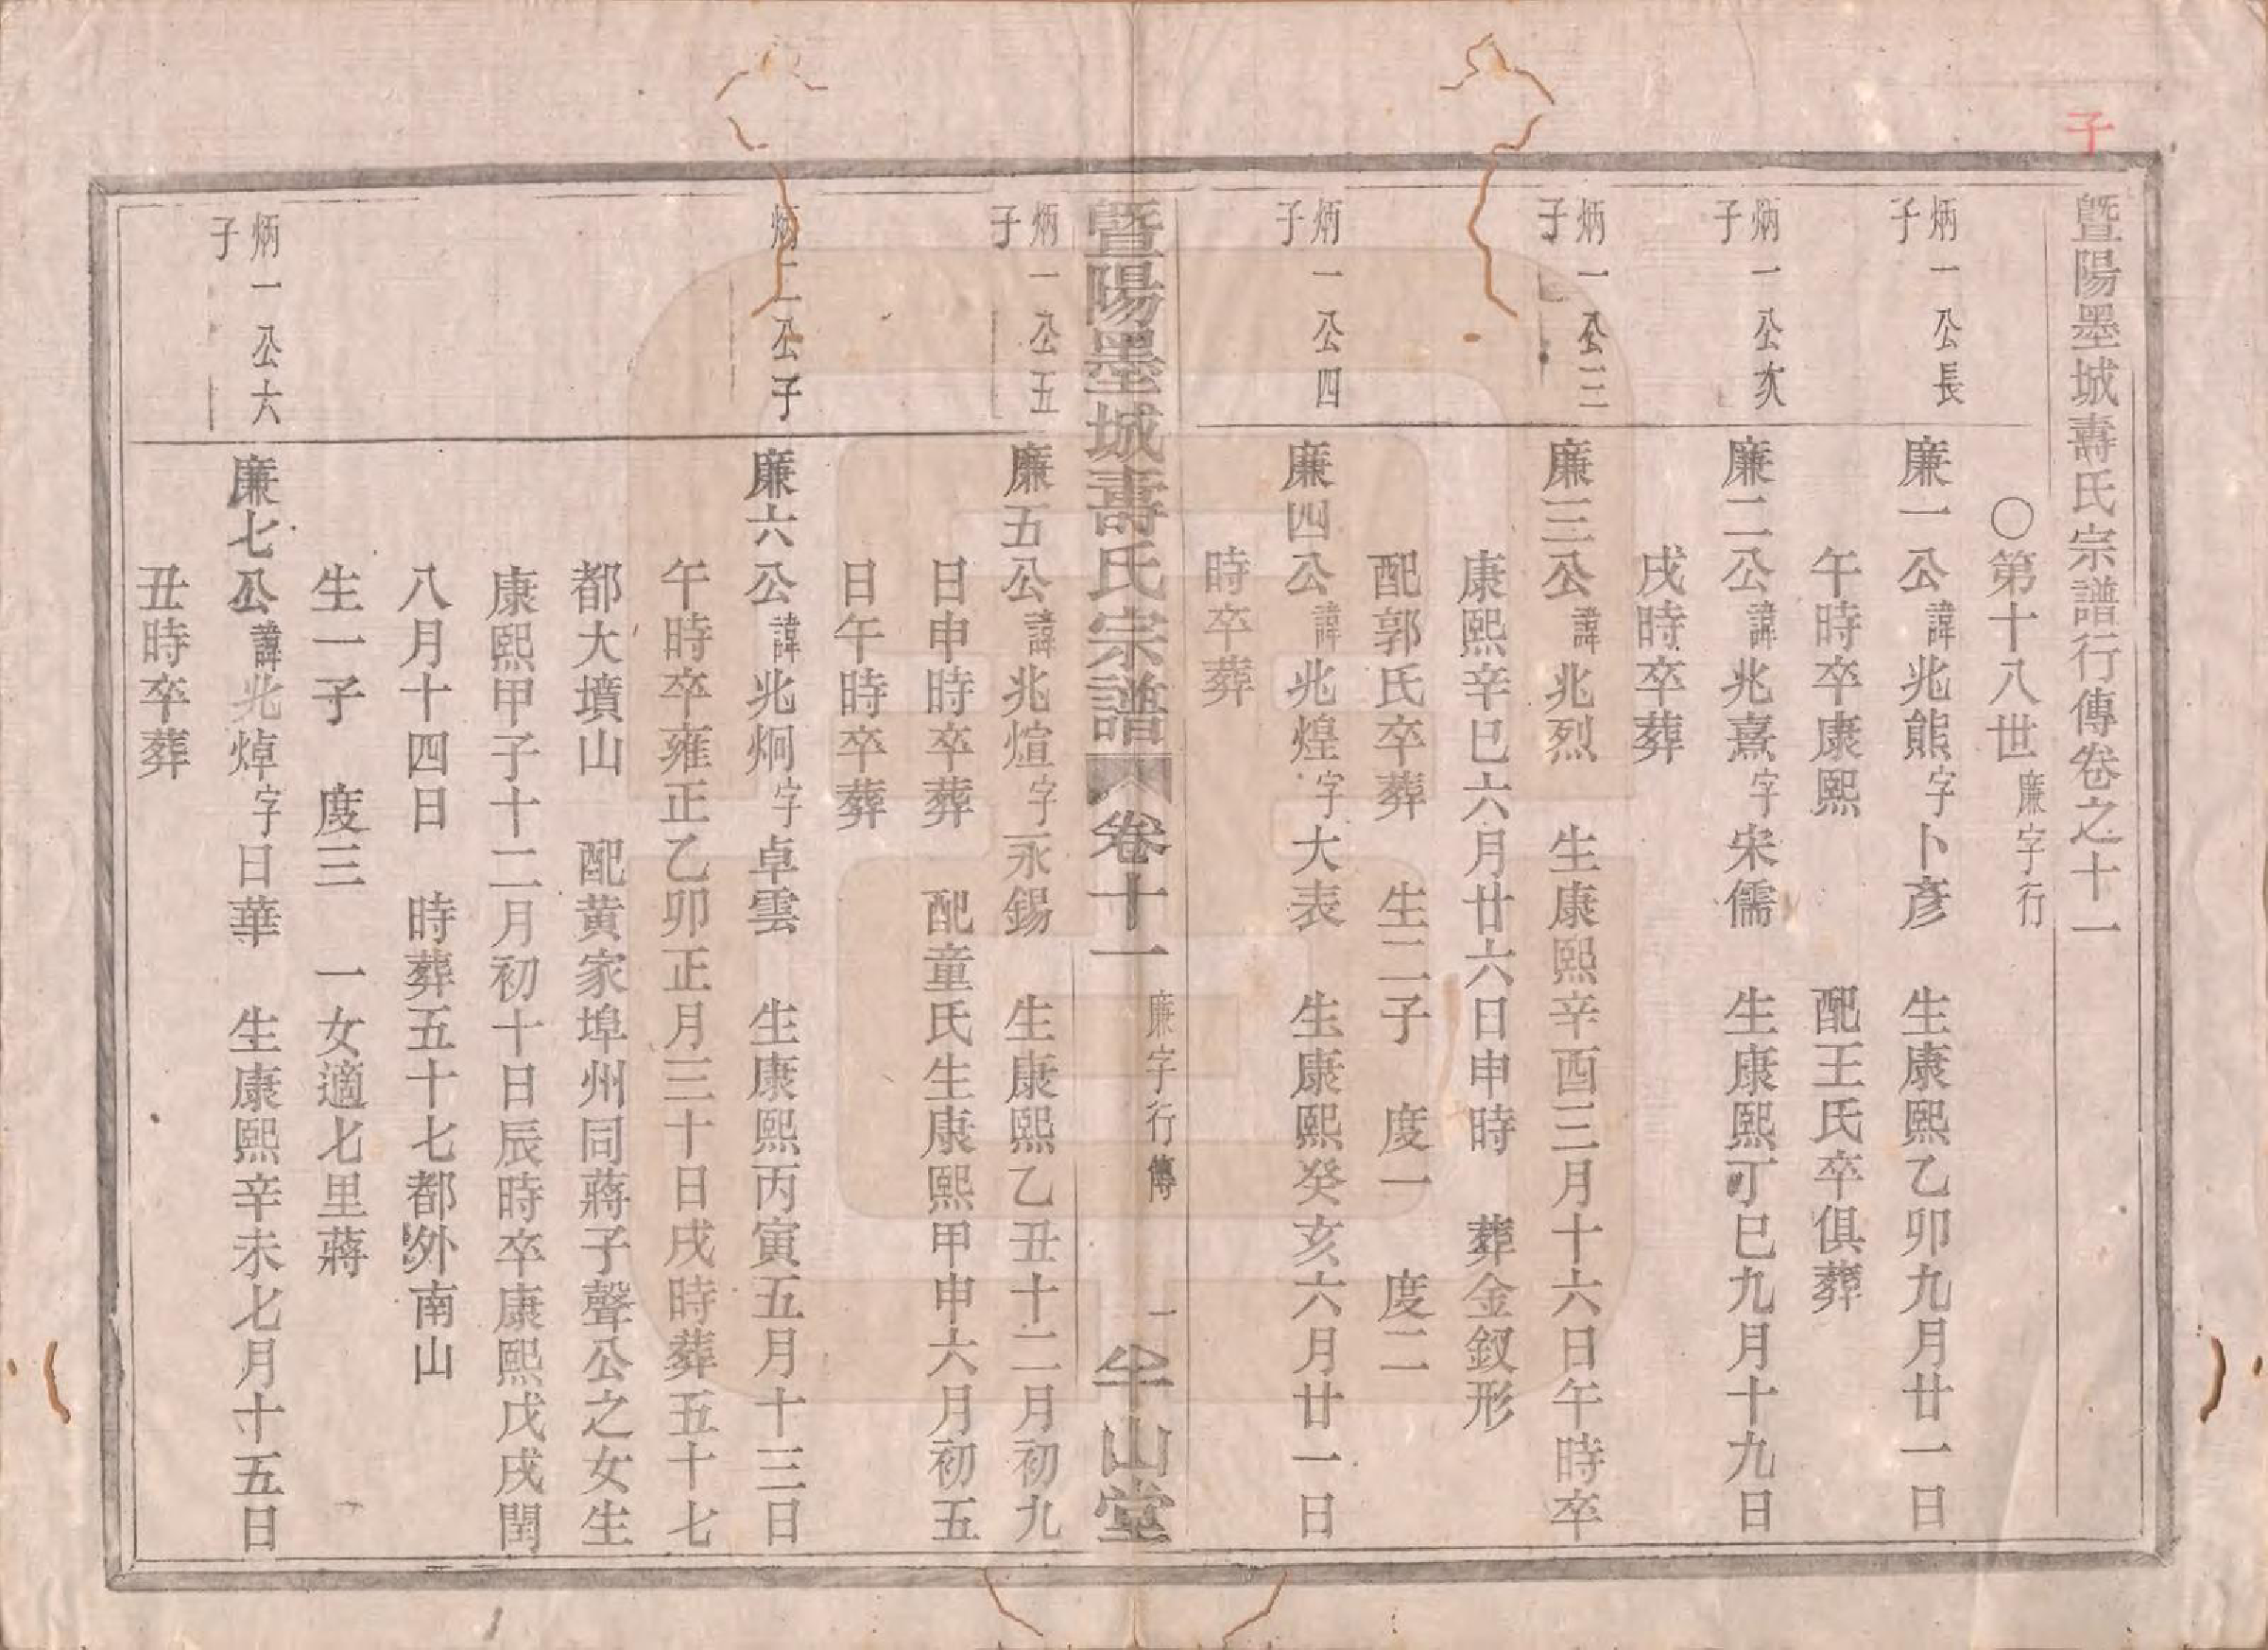 子
暨陽墨城壽氏宗譜行傳卷之十一
○第十八世廉字行
炳一公長子
廉一公諱兆熊字卜彥　生康熙乙卯九月廿一日
午時卒康熙　　　配王氏卒俱葬
炳一公次子
廉二公諱兆熹字宋儒　生康熙丁巳九月十九日
戌時卒葬
炳一公三子
廉三公諱兆烈　生康熙辛酉三月十六日午時卒
康熙辛巳六月廿六日申時　葬金釵形
配郭氏卒葬　生二子　度一　度二
炳一公四子
廉四公諱兆煌字大表　生康熙癸亥六月廿一日
時卒葬
暨陽墨城壽氏宗譜　卷十一　廉字行傳　一　午山堂
炳一公五子
廉五公諱兆煊字永錫　生康熙乙丑十二月初九
日申時卒葬　配童氏生康熙甲申六月初五
日午時卒葬
炳二公子
廉六公諱兆炯字卓雲　生康熙丙寅五月十三日
午時卒雍正乙卯正月三十日戌時葬五十七
都大墳山　配黄家埠州同蔣子聲公之女生
康熙甲子十二月初十日辰時卒康熙戊戌閏
八月十四日　時葬五十七都外南山
生一子　度三　一女適七里蔣
炳一公六子
廉七公諱兆焯字日華　生康熙辛未七月十五日
丑時卒葬